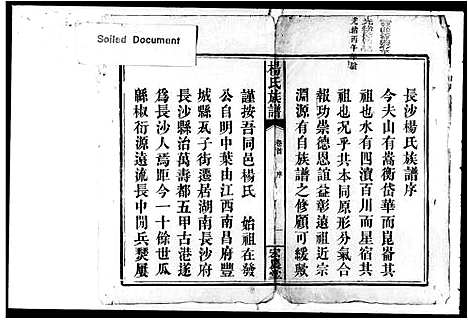 Soiled Document
長沙楊氏族譜序
今夫山有嵩衡岱華而崑崙其
祖也水有四瀆百川而星宿其
祖也况乎共本同原形分氣合
報功崇德恩誼益彰遠祖近宗
淵源有自族譜之修顧可緩歟
楊氏族譜
卷首
序
謹按吾同邑楊氏 始祖在發
公自明中葉由江西南昌府豐
城縣瓦子街遷居湖南長沙府
長沙縣治萬壽都五甲古港遂
爲長沙人焉距今一十餘世瓜
緜椒衍源遠流長中閒兵燹屢